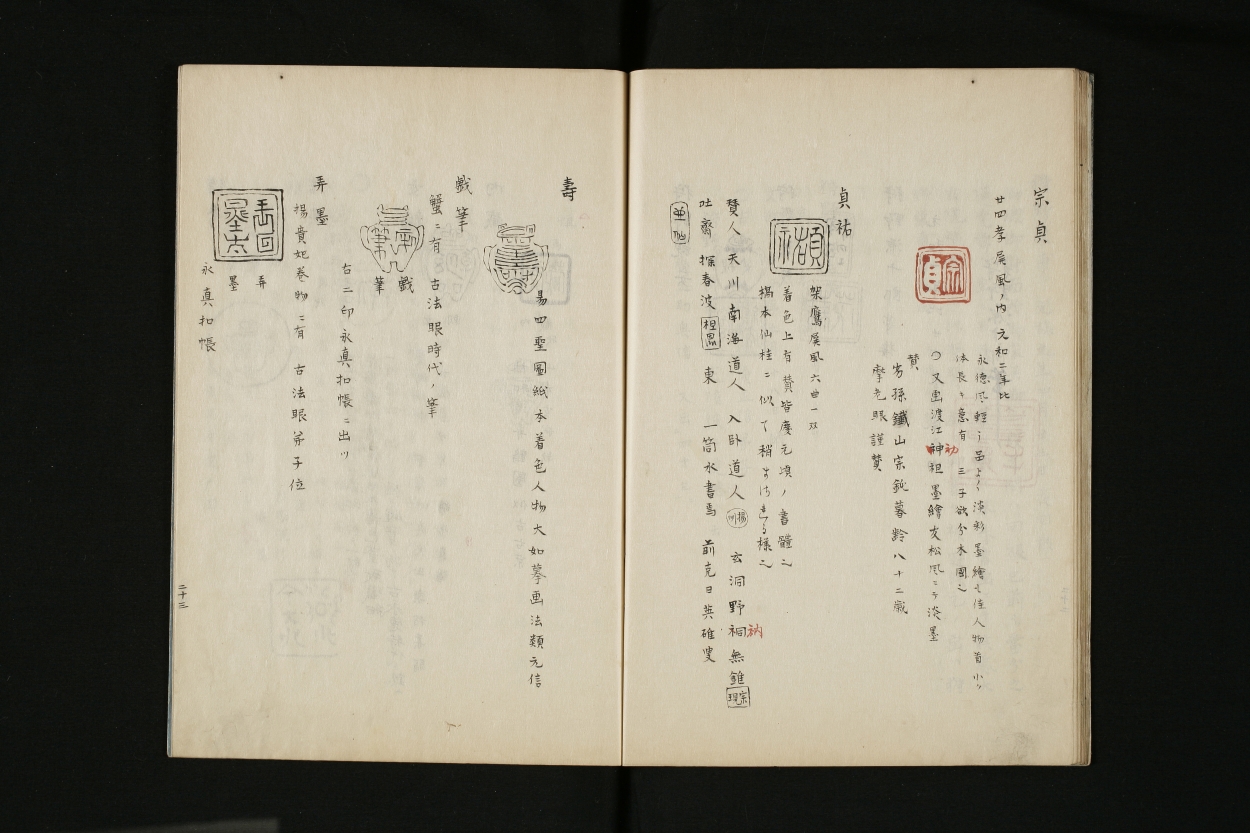 宗貞
廿四孝屏風ノ内 元和二年比
永徳風軽キ品ヨク淡彩墨繪モ佳人物首小ク
体長ク意有 三子欲分木圖也
〇又画渡江神祖墨繪友松風ニテ淡墨
初
宗貞
賛
劣孫鐵山宗鈍暮齢八十二歳
摩老眼謹賛
貞祐
架鷹屏風六曲一双
着色上有賛皆慶元頃ノ書體也
橋本仙桂ニ似テ稍
様也
賛人 天川南海道人 入卧道人 楊州 玄洞野祠無錐 宗現
衲
吐齋 探春波 東 一筒水書焉 前克日英碓叟
壽
易四聖圖紙本着色人物大如摹画法類元信
戯筆
蟹ニ有 古法眼時代ノ筆
戯筆
右二印永真扣帳ニ出ツ
弄墨
楊貴妃巻物ニ有 古法眼弟子位
弄墨
永真扣帳
二十三